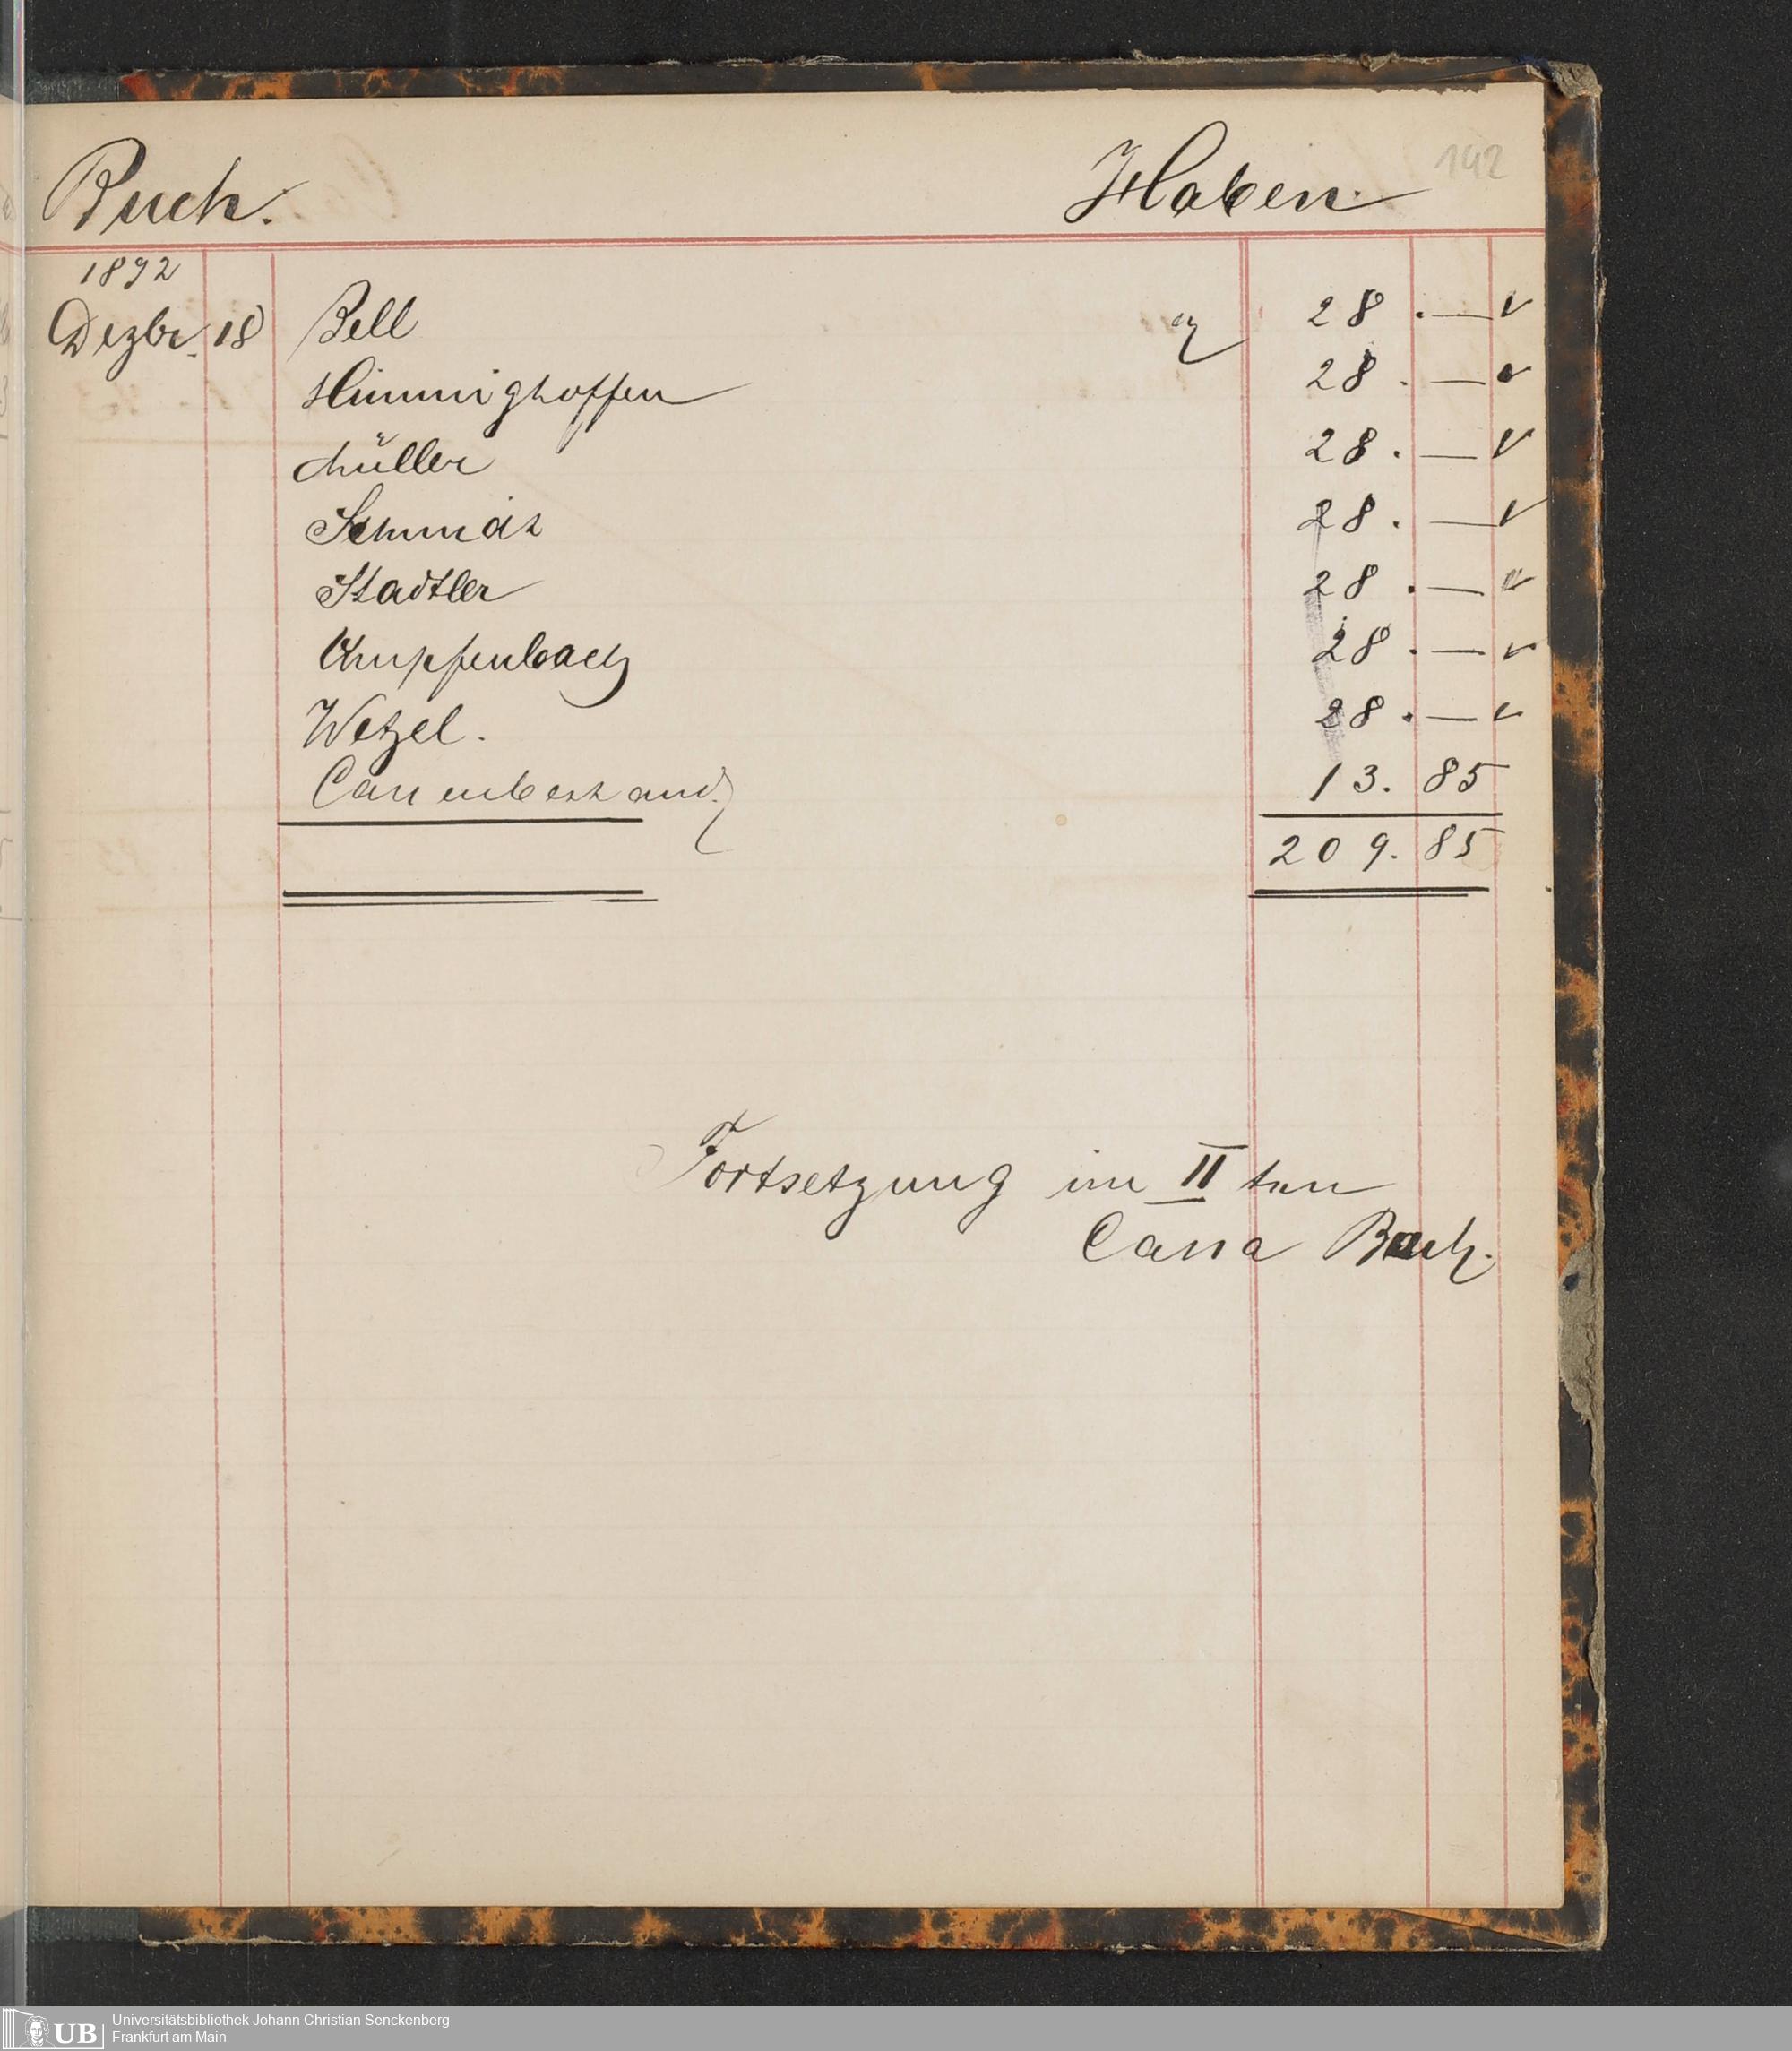 142
Buch. Haben.
1892
Dezbr. 18 Bell 28. — ✓
Himmighoffen 28. — ✓
Müller 28. — ✓
Schmidt 28. — ✓
Stadtler 28. — ✓
28. — ✓
Wetzel. 28. — ✓
Cassenbestand. 13. 85
209. 85
Fortsetzung im II ten
Cassa Buch.
UB Universitätsbibliothek Johann Christian Senckenberg
Frankfurt am Main